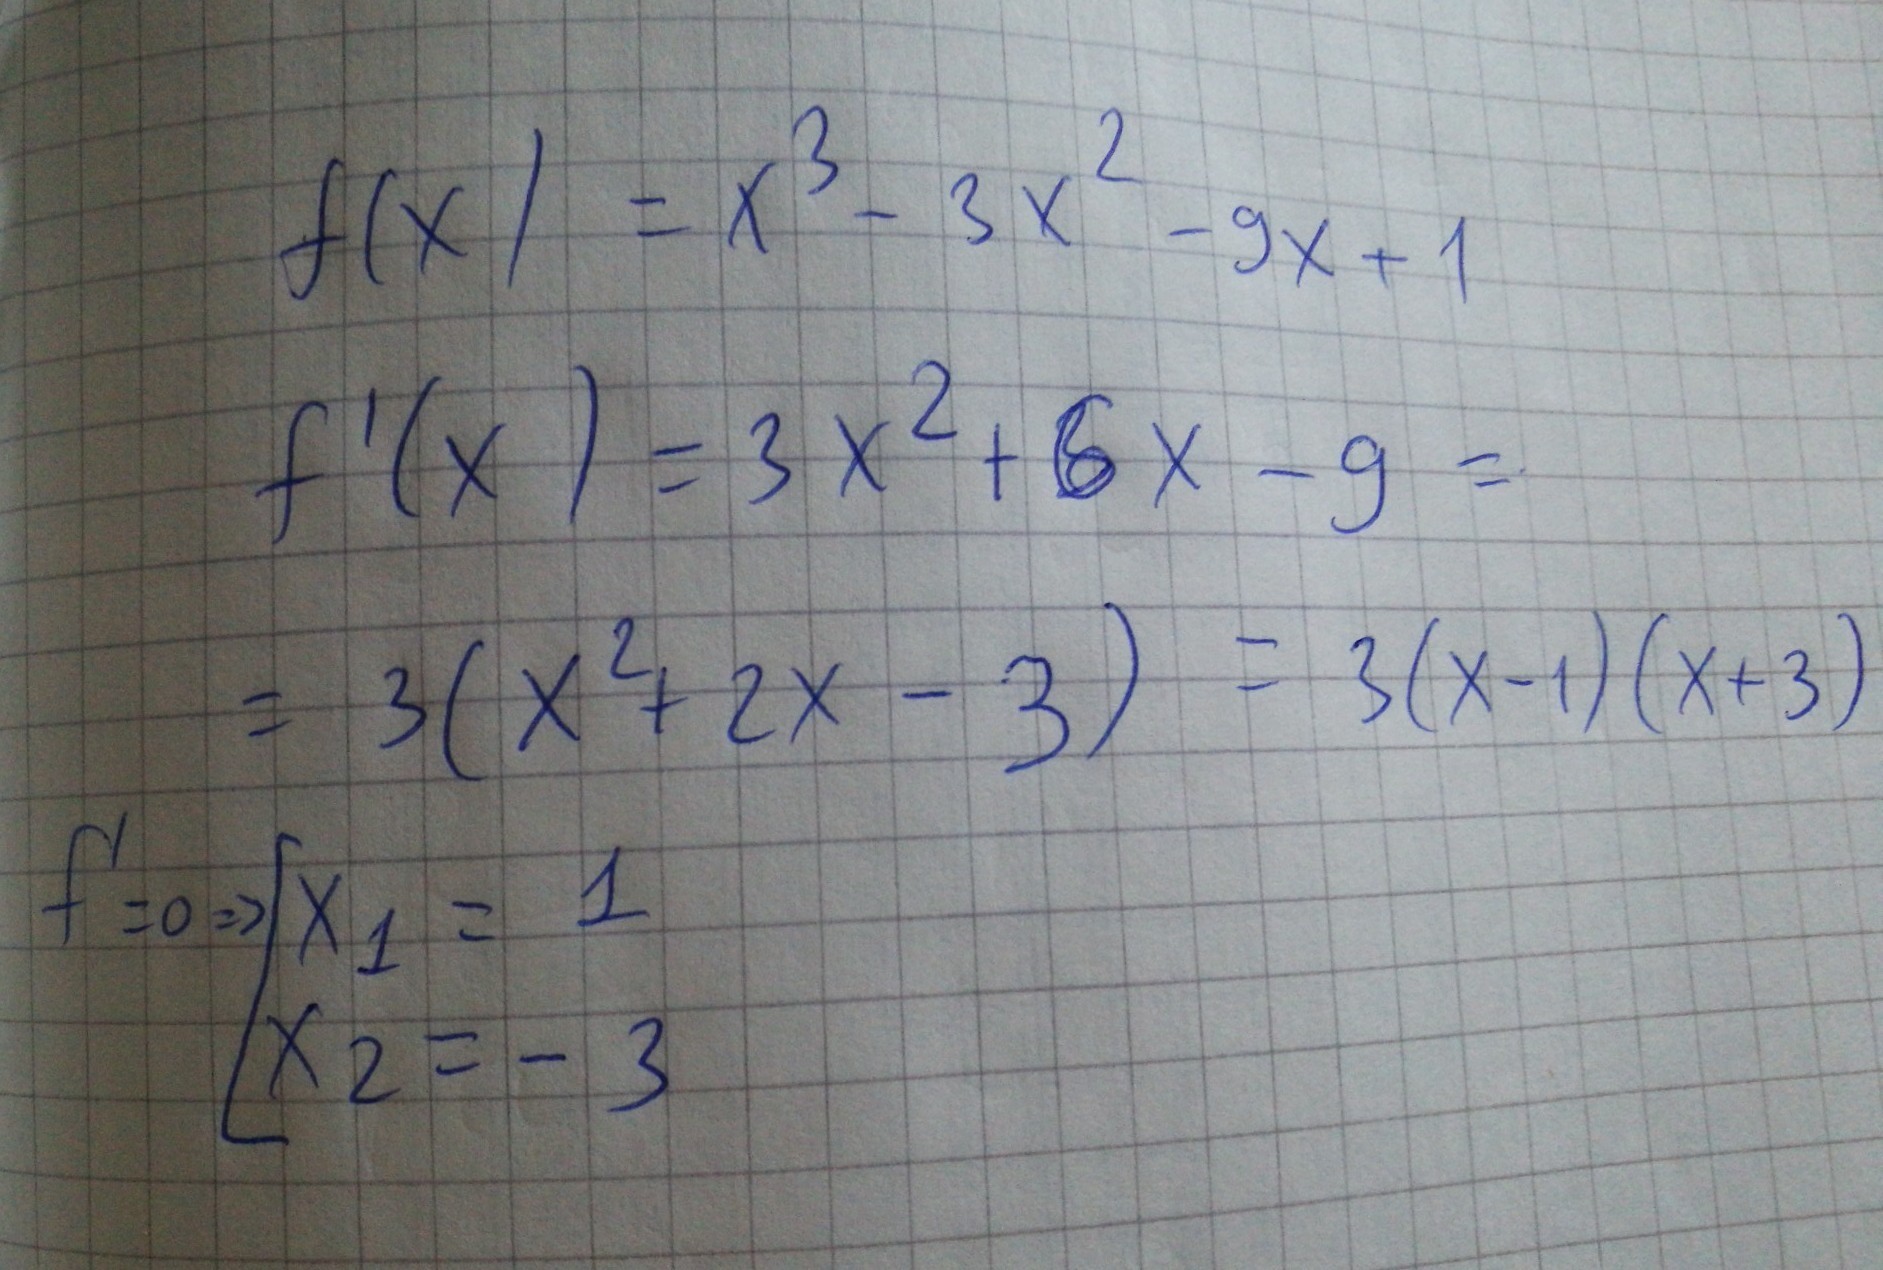 f(x) = x³ - 3x² - 9x + 1
f'(x) = 3x² + 6x - 9 =
= 3(x² + 2x - 3) = 3(x-1)(x+3)
f' = 0 => [x₁ = 1
x₂ = - 3